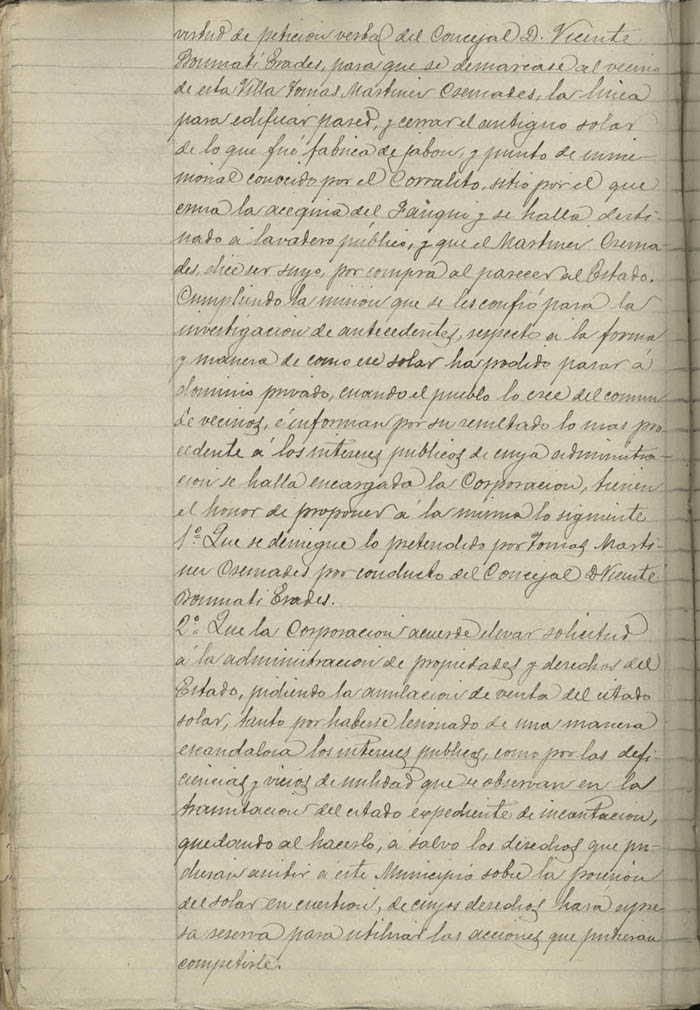 virtud de peticion verbal del Concejal D. Vicente
Boumatí Erades, para que se demarcase al vecino
de esta Villa Tomas Martinez Csemades, la linea
para edificar pared, y cerrar el antiguo solar
de lo que fué fabrica de jabon, y punto de inme-
morial conocido por el Corralito, sitio por el que
cruza la acequia del Fanqui y se halla desti-
nado á lavadero público, y que el Martinez Csema-
des, dice ser suyo, por compra al parecer al Estado.
Cumpliendo la mision que se les confió para la
investigacion de antecedentes, respecto a la forma
y manera de como ese solar ha podido pasar á
dominio privado, cuando el pueblo lo cree del comun
de vecinos, é informan por su resultado lo mas pro
cedente á los intereses publicos de cuya administra-
cion se halla encargada la Corporacion, tienen
el honor de proponer á la misma lo siguiente
1.º Que se deniegue lo pretendido por Tomas Marti-
nez Csemades por conducto del Concejal D Vicente
Boumatí Erades.
2.º Que la Corporacion acuerde elevar solicitud
á la administracion de propiedades y derechos del
Estado, pidiendo la anulacion de venta del citado
solar, tanto por haberse lesionado de una manera
escandalosa los intereses publicos, como por las defi-
ciencias y vicios de nulidad que se observan en la
tramitacion del citado expediente de incautacion,
quedando al hacerlo, á salvo los derechos que pu-
dieran asistir á este Municipio sobre la posesion
del solar en cuestion, de cuyos derechos hará espre-
sa reserva para utilizar las acciones que pudieran
competirle.